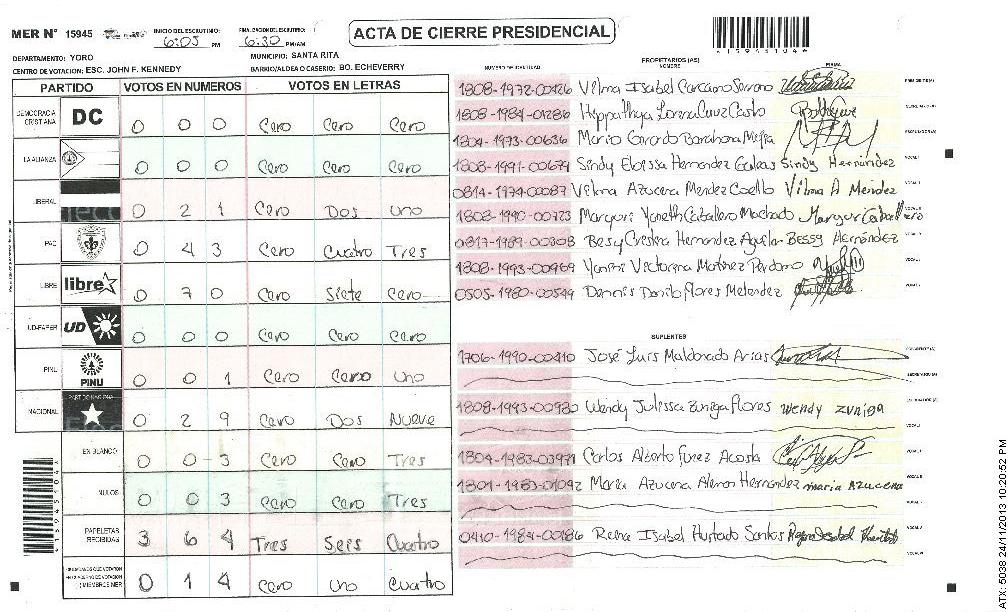 MER Nº 15945 INICIO DEL ESCRUTINIO: 6:05 PM FINALIZACION DEL ESCRUTINIO: 6:30 PM/AM
ACTA DE CIERRE PRESIDENCIAL
DEPARTAMENTO: YORO MUNICIPIO: SANTA RITA
CENTRO DE VOTACION: ESC. JOHN F. KENNEDY BARRIO/ALDEA O CASERIO: BO. ECHEVERRY
PARTIDO VOTOS EN NUMEROS VOTOS EN LETRAS
DEMOCRACIA CRISTIANA DC 0 0 0 Cero Cero Cero
LA ALIANZA 0 0 0 Cero Cero Cero
LIBERAL 0 2 1 Cero Dos Uno
PAC 0 4 3 Cero Cuatro Tres
LIBRE libre 0 7 0 Cero Siete Cero
UD-FAPER UD 0 0 0 Cero Cero Cero
PINU PINU 0 0 1 Cero Cero Uno
NACIONAL PARTIDO NACIONAL 0 2 9 Cero Dos Nueve
EN BLANCO 0 0 - 3 Cero Cero Tres
NULOS 0 0 3 Cero Cero Tres
PAPELETAS RECIBIDAS 3 6 4 Tres Seis Cuatro
0 1 4 Cero Uno Cuatro
NUMERO DE IDENTIDAD PROPIETARIOS (AS) NOMBRE FIRMA
1808-1972-00426 Vilma Isabel Carcamo Serrano
1808-1984-01286 Hyppathya Lorena Cruz Castro
1804-1973-00636 Mario Gerardo Barahona Mejia
1808-1991-00679 Sindy Eloissa Hernandez Sindy Hernández
0814-1974-00087 Vilma Azucena Mendez Coello Vilma A Mendez
1808-1990-00723 Margori Yaneth Caballero Machado
0817-1989-00308 Besy Cristina Hernandez Aguilar BESSY Hernández
1808-1993-00969 Yanori Victorena Martinez Perdomo
0505-1980-00549 Dennis Danilo Flores Melendez
SUPLENTES
1706-1990-00410 José Luis Maldonado Arias
1808-1993-00980 Wendy Julissa Zuniga Flores Wendy Zuniga
1804-1983-03971 Carlos Alberto Funez Acosta
1801-1983-01092 Maria Azucena Hernandez maria Azucena
0410-1984-00186 Reina Isabel Hurtado Santos
ATX: 5038 24/11/2013 10:20:52 PM